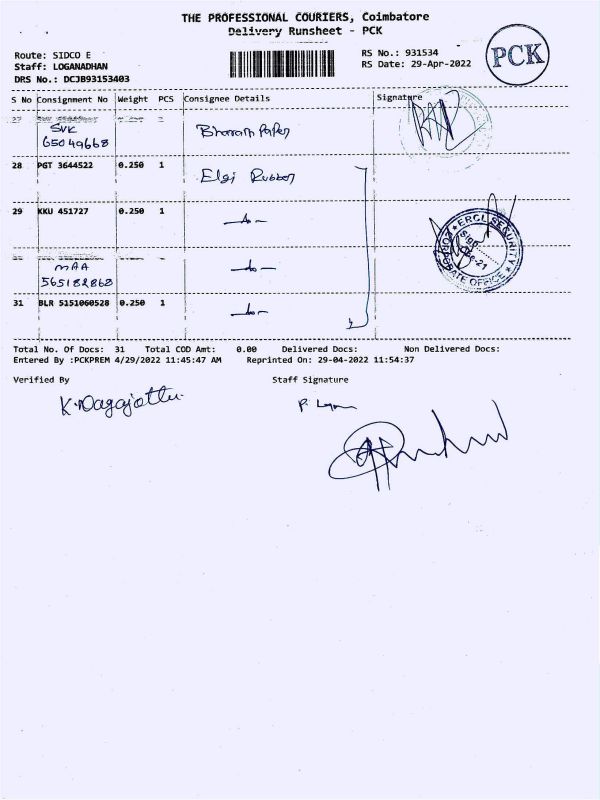 THE PROFESSIONAL COURIERS, Coimbatore
Delivery Runsheet - PCK
Route: SIDCO E
Staff: LOGANADHAN
DRS No.: DCJB93153403
RS No.: 931534
RS Date: 29-Apr-2022
PCK
S No Consignment No Weight PCS Consignee Details Signature
27
SVK
65049668
28 PGT 3644522 0.250 1 Elgi Rubber
29 KKU 451727 0.250 1 -do-
MAA -do-
565182868
31 BLR 5151060528 0.250 1 -do-
ERCL SECURITY
GATE OFFICE
Total No. Of Docs: 31 Total COD Amt: 0.00 Delivered Docs: Non Delivered Docs:
Entered By :PCKPREM 4/29/2022 11:45:47 AM Reprinted On: 29-04-2022 11:54:37
Verified By Staff Signature